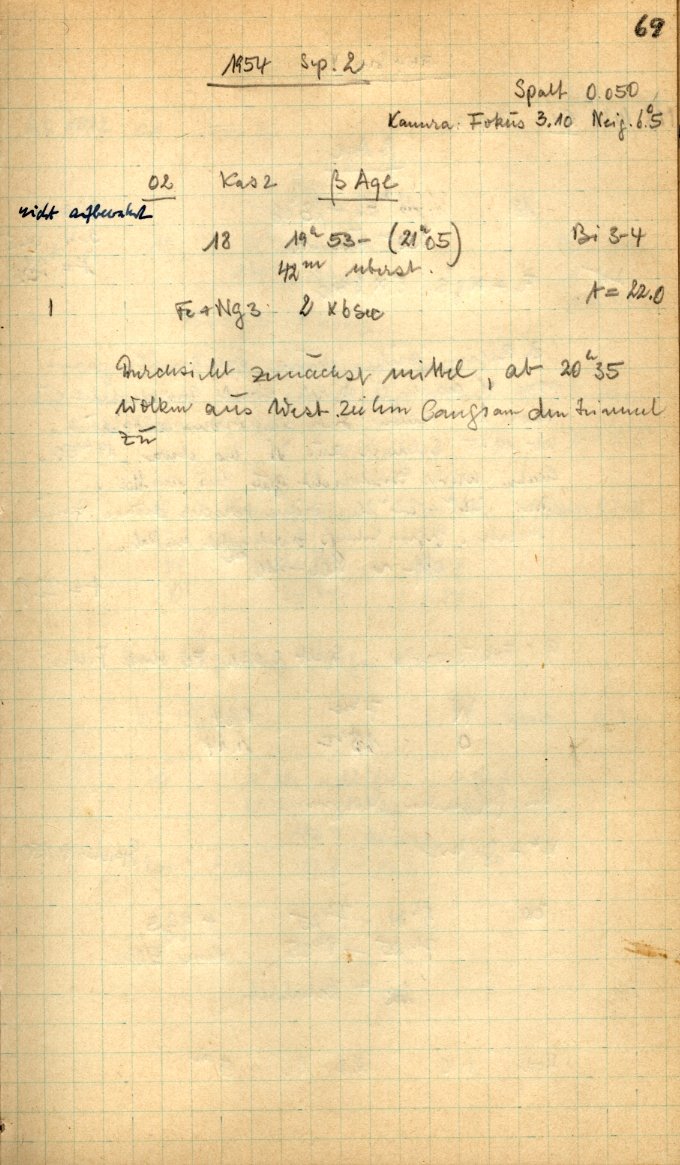 69
1954 Sep. 2
Spalt 0.050
Kamera: Fokus 3.10 Neig. 6°.5
02 Kas 2 β Aql
nicht aufbewahrt
18 19ʰ 53 - (21ʰ05) Bi 3-4
42ᵐ überst.
t = 22.0
1 Fe + Ng 3 2 x 6 sec
Durchsicht zunächst mittel, ab 20ʰ35
Wolken aus West ziehen langsam den Himmel
zu